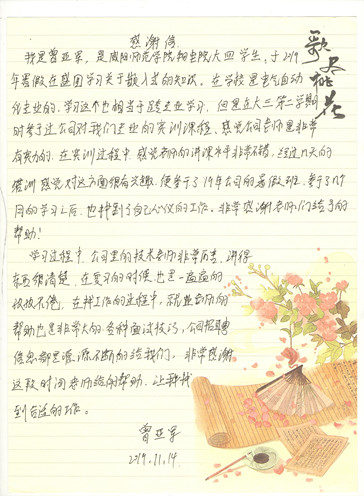 感谢信
我是曾亚军，是咸阳师范学院物电院大四学生，于2019
年暑假在盛图学习关于嵌入式的知识。在学校是电气自动
化专业的，学习这个也相当于跨专业学习，但是在大三第二学期
时参于过公司对我们专业的实训课程，感觉公司老师是非常
有实力的，在实训过程中感觉老师的讲课水平非常不错，经过几天的
培训感觉对这方面很有兴趣，便参于了19年公司的暑假班，参于了几个
月的学习之后，也找到了自己心仪的工作。非常感谢老师们给予的
帮助！
学习过程中，公司里的技术老师非常厉害，讲得
东西很清楚，在复习的时候也是一遍遍的
孜孜不倦，在找工作的过程中，就业老师的
帮助也是非常大的，各种面试技巧，公司招聘
信息都是源源不断的给我们，非常感谢
这段时间老师给的帮助，让我找
到合适的工作。
曾亚军
2019.11.14
歌尽桃花